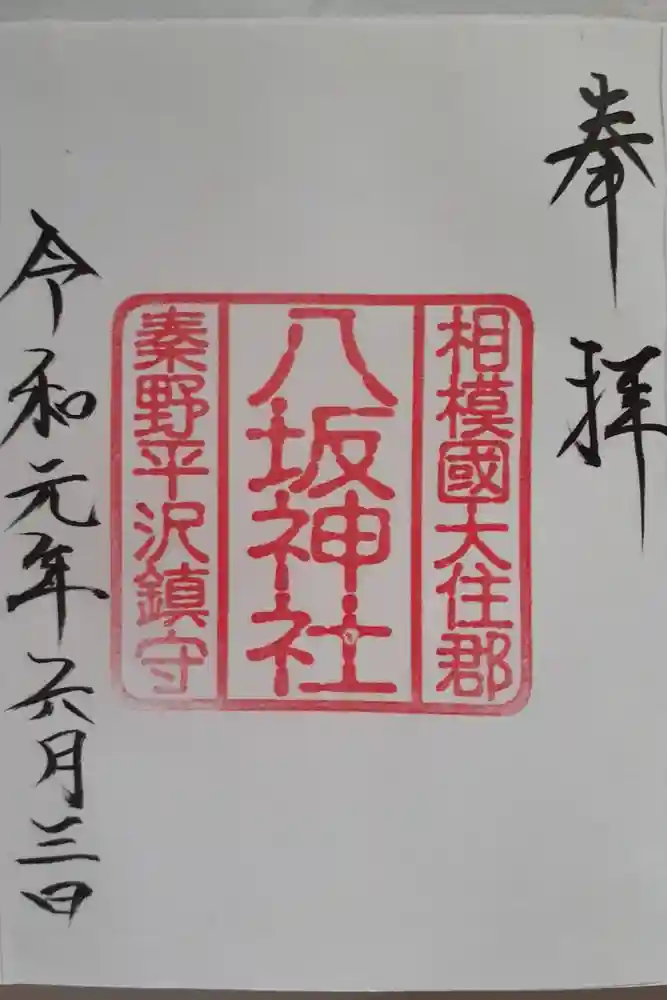 奉拝
相模國大住郡
八坂神社
秦野平沢鎮守
令和元年六月三日